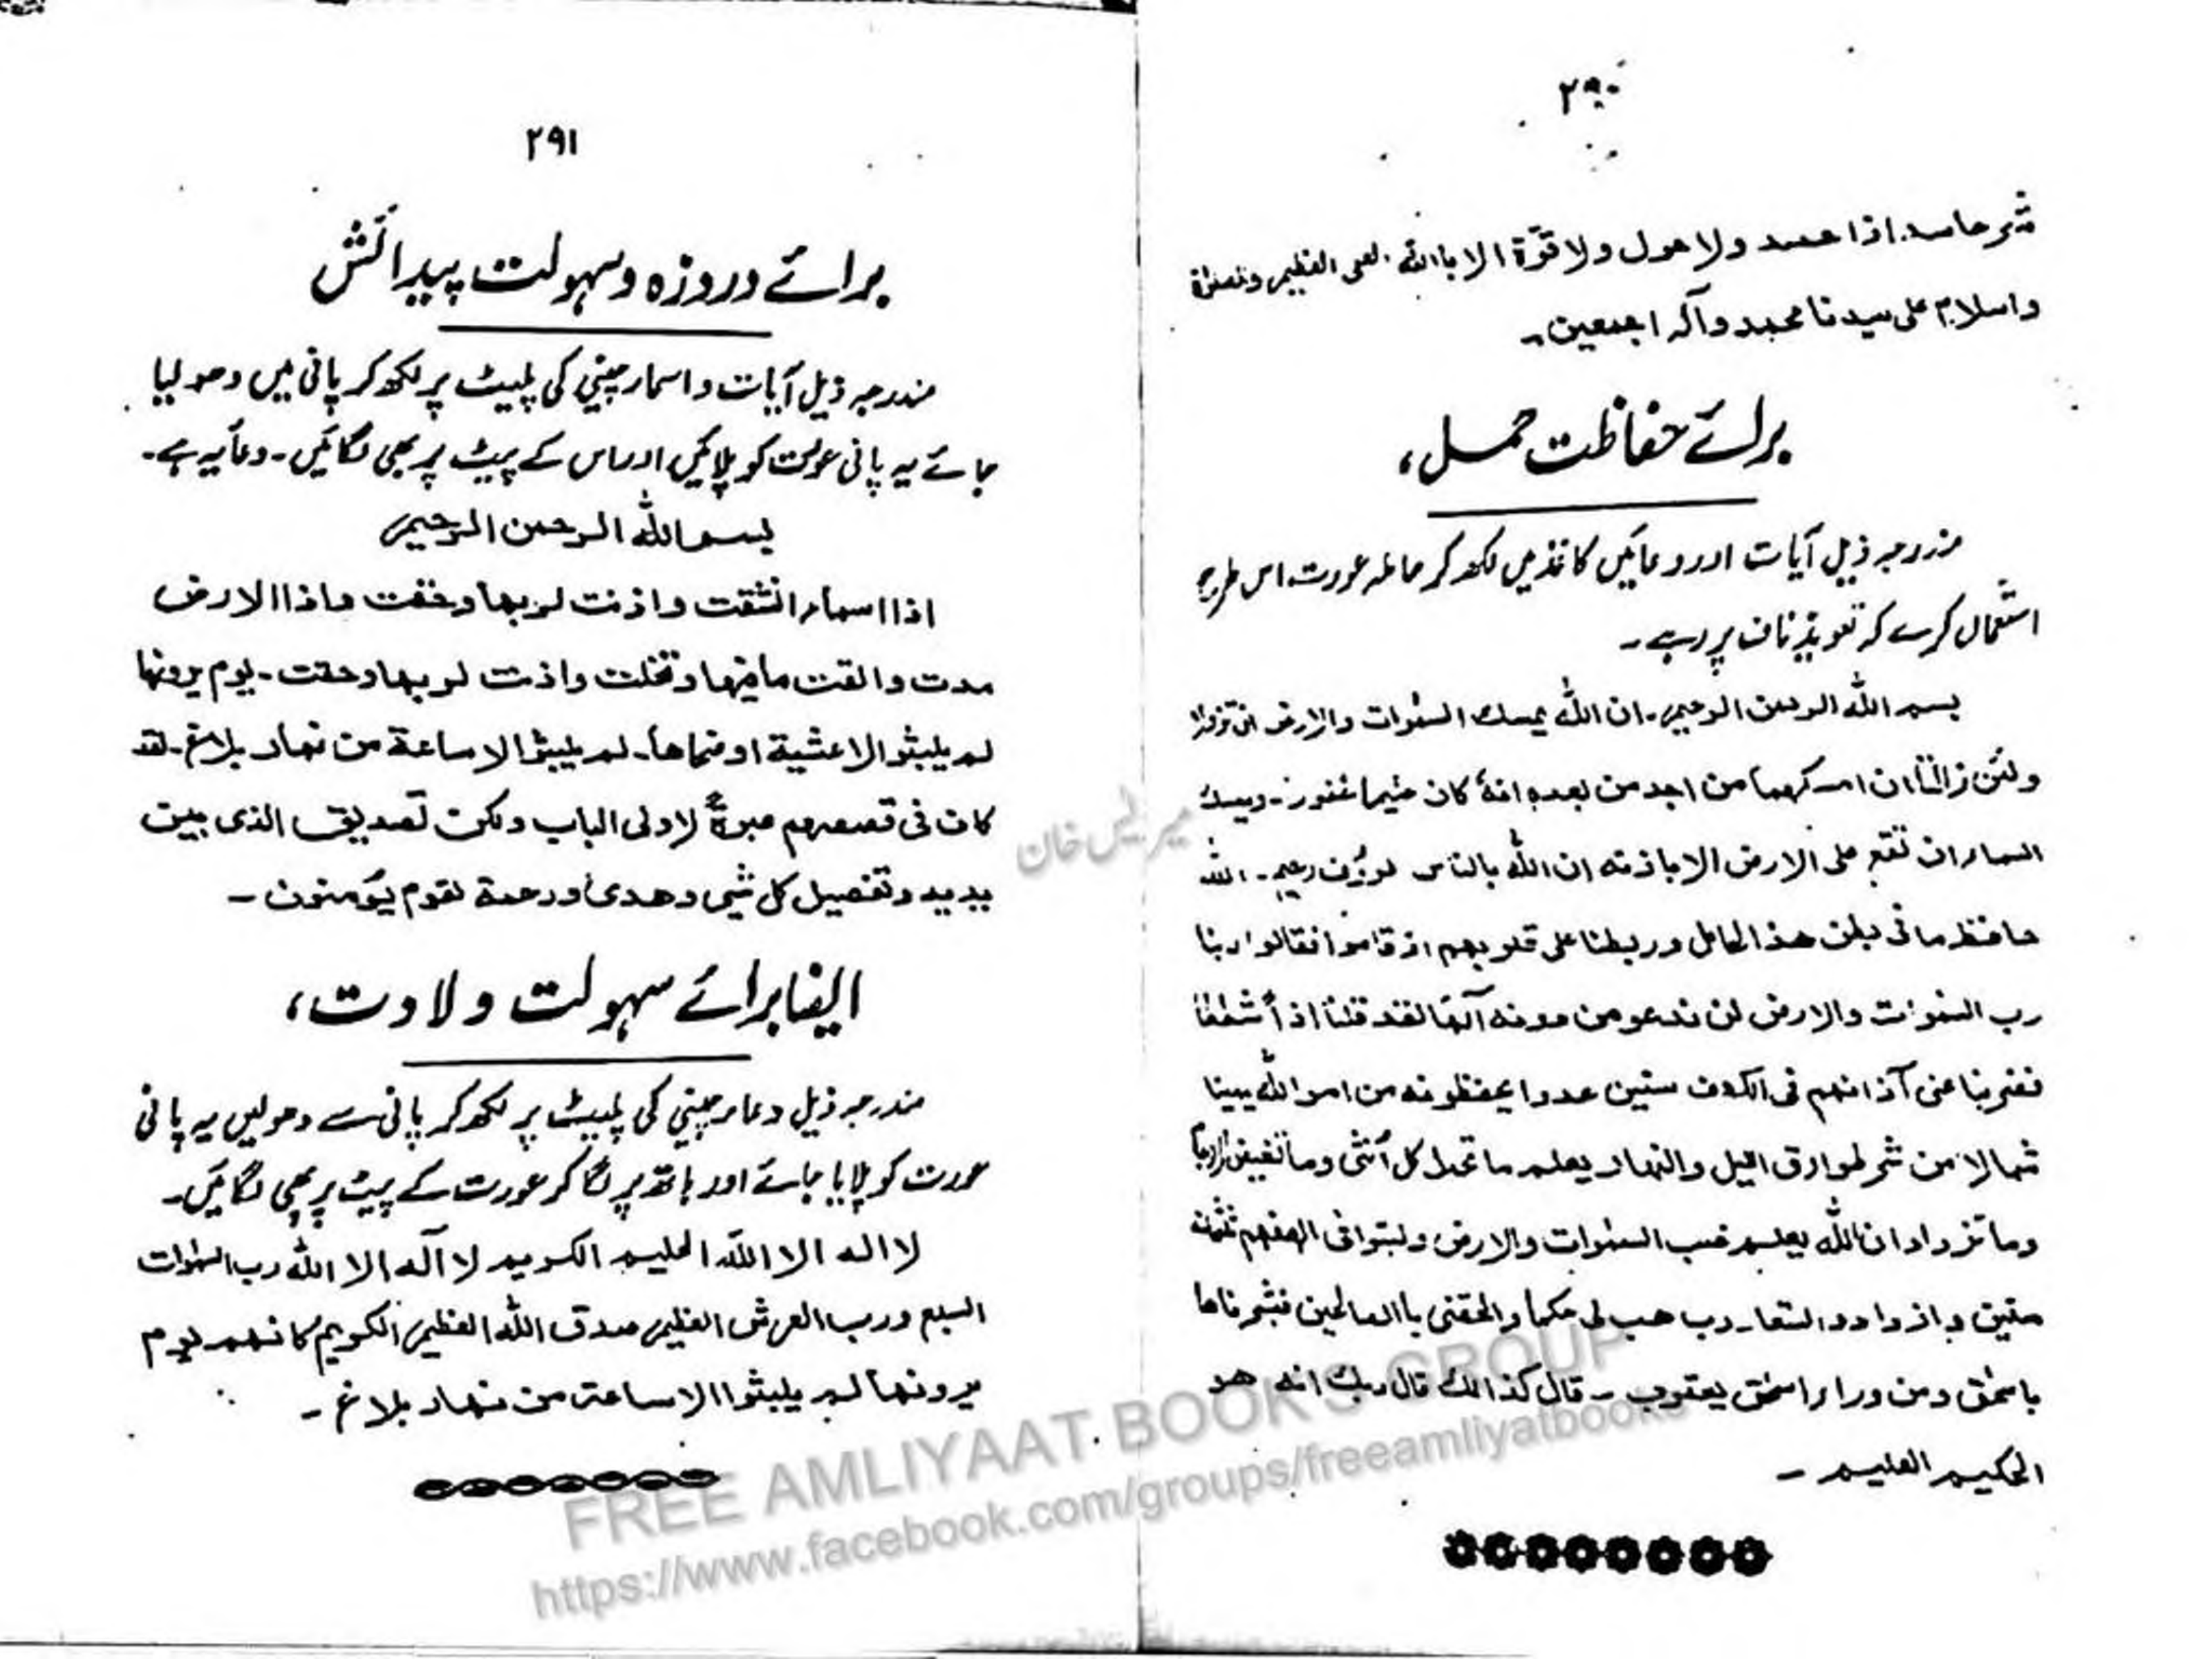 ٢٩٠
شر حاسد اذا حسد ولا حول ولا قوّة الا باالله العلى العظيم والصلواة
واسلام على سيدنا محمد وآله اجمعين۔
برائے حفاظت حمل،
مندرجہ ذیل آیات اور دعائیں کاغذ میں لکھ کر حاملہ عورت اس طرح
استعمال کرے کہ تعویذ ناف پر رہے۔
بسم الله الرحمن الرحيم۔ ان الله يمسك السمٰوات والارض ان تزولا
ولئن زالتا ان امسكهما من احد من بعده انهٗ كان حليما غفورا۔ ويمسك
السماء ان تقع على الارض الا باذنه ان الله بالناس لرؤف رحيم۔ الله
حافظ ما فى بطن هذا الحامل وربطنا على قلوبهم اذ قاموا فقالوا ربنا
رب السمٰوات والارض لن ندعو من دونه آلهًا لقد قلنا اذاً شططا
فضربنا على آذانهم فى الكهف سنين عددا يحفظونه من امر الله يمينا
شمالا من شر طوارق اليل والنهار يعلم ما تحمل كل أنثى وما تغيض الارحام
وما تزداد ان الله يعلم غيب السمٰوات والارض ولبثوا فى كهفهم ثلثمئة
سنين و ازدادو التسعا۔ رب هب لى حكما والحقنى باالصالحين فبشرناها
باسحٰق ومن وراء اسحٰق يعقوب۔ قال كذالك قال ربك انه هو
الحكيم العليم۔
٢٩١
برائے دروزہ وسہولت پیدائش
مندرجہ ذیل آیات و اسماء چینی کی پلیٹ پر لکھ کر پانی میں دھو لیا
جائے یہ پانی عورت کو پلائیں اور اس کے پیٹ پر بھی لگائیں۔ دعا یہ ہے۔
بسم الله الرحمن الرحيم
اذا اسماء انشقت واذنت لربها وحقت واذا الارض
مدت والقت ما فيها وتخلت واذنت لربها وحقت۔ يوم يرونها
لم يلبثوا الا عشية او ضحاها۔ لم يلبثوا الا ساعة من نهار بلاغ۔ لقد
كان فى قصصهم عبرةٌ لاولى الباب ولكن تصديق الذى بين
يديه وتفصيل كل شيى وهدى ورحمة لقوم يؤمنون۔
ایضا برائے سہولت ولادت،
مندرجہ ذیل دعاء چینی کی پلیٹ پر لکھ کر پانی سے دھولیں یہ پانی
عورت کو پلایا جائے اور ہاتھ پر لگا کر عورت کے پیٹ پر بھی لگائیں۔
لا اله الا الله الحليم الكريم لا آله الا الله رب السمٰوات
السبع ورب العرش العظيم صدق الله العظيم الكريم كانهم يوم
يرونها لم يلبثوا الا ساعة من نهار بلاغ۔
میر بلس خان
FREE AMLIYAAT BOOKS GROUP
https://www.facebook.com/groups/freeamliyatbooks